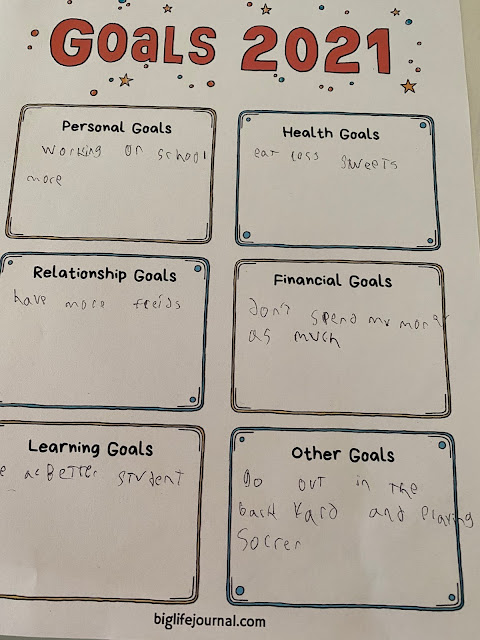 GOALS 2021
Personal Goals
Working on school
more
Health Goals
eat less sweets
Relationship Goals
have more freids
Financial Goals
don't spend my money
as much
Learning Goals
e a better student
Other Goals
Go out in the
back yard and playing
Soccer
biglifejournal.com